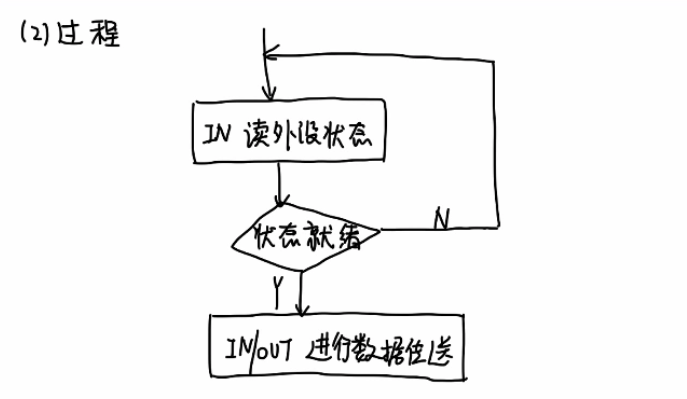 (2)过程
IN 读外设状态
状态就绪
N
Y
IN/OUT 进行数据传送